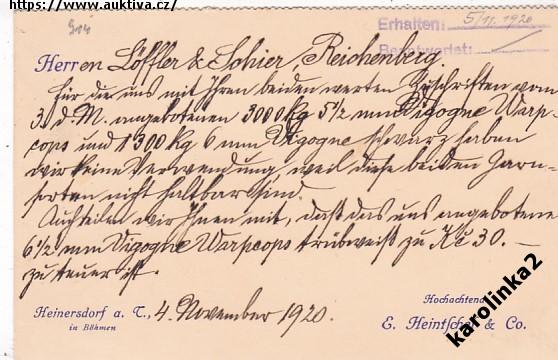 https://www.auktiva.cz/
914
Erhalten: 5/11. 1920
Beantwortet:
Herren Löffler & Sohier, Reichenberg.
Für die uns mit Ihren beiden werten Zuschriften vom
3. d. M. angebotenen 3000 Kg 5 1/2 mm Vigogne Warp-
cops und 1300 Kg 6 mm Vigogne schwarz haben
wir keine Verwendung, weil diese beiden Garn-
sorten nicht haltbar sind.
Auch teilen wir Ihnen mit, daß das uns angebotene
6 1/2 mm Vigogne Warpcops trübweiß zu Kč 30.—
zu teuer ist.
Heinersdorf a. T., 4. November 1920.
in Böhmen
Hochachtend
E. Heintschel & Co.
karolinka2